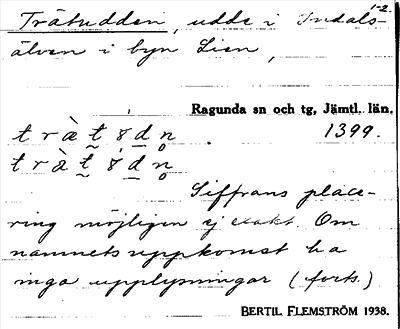 1-2.
Trätudden, udde i Indals-
älven i byn Lien,
Ragunda sn och tg, Jämtl. län.
1399.
Siffrans place-
ring möjligen ej exakt. Om
namnets uppkomst ha
inga upplysningar (forts.)
BERTIL FLEMSTRÖM 1938.